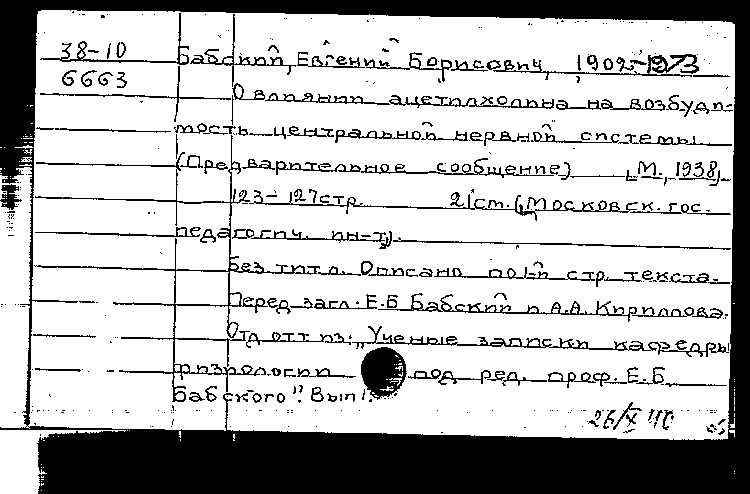 38-10 Бабский, Евгений Борисович, 1902-1973
6663
О влиянии ацетилхолина на возбуди-
мость центральной нервной системы.
(Предварительное сообщение) [М., 1938].
123-127 стр. 21 см. (Московск. гос.
педагогич. ин-т).
Без тит. л. Описано по 1-й стр. текста.
Перед загл.: Е.Б Бабский и А.А. Кириллова.
Отд отт из: „Ученые записки кафедры
физиологии под ред. проф. Е.Б
Бабского". Вып 1.
26/X 40